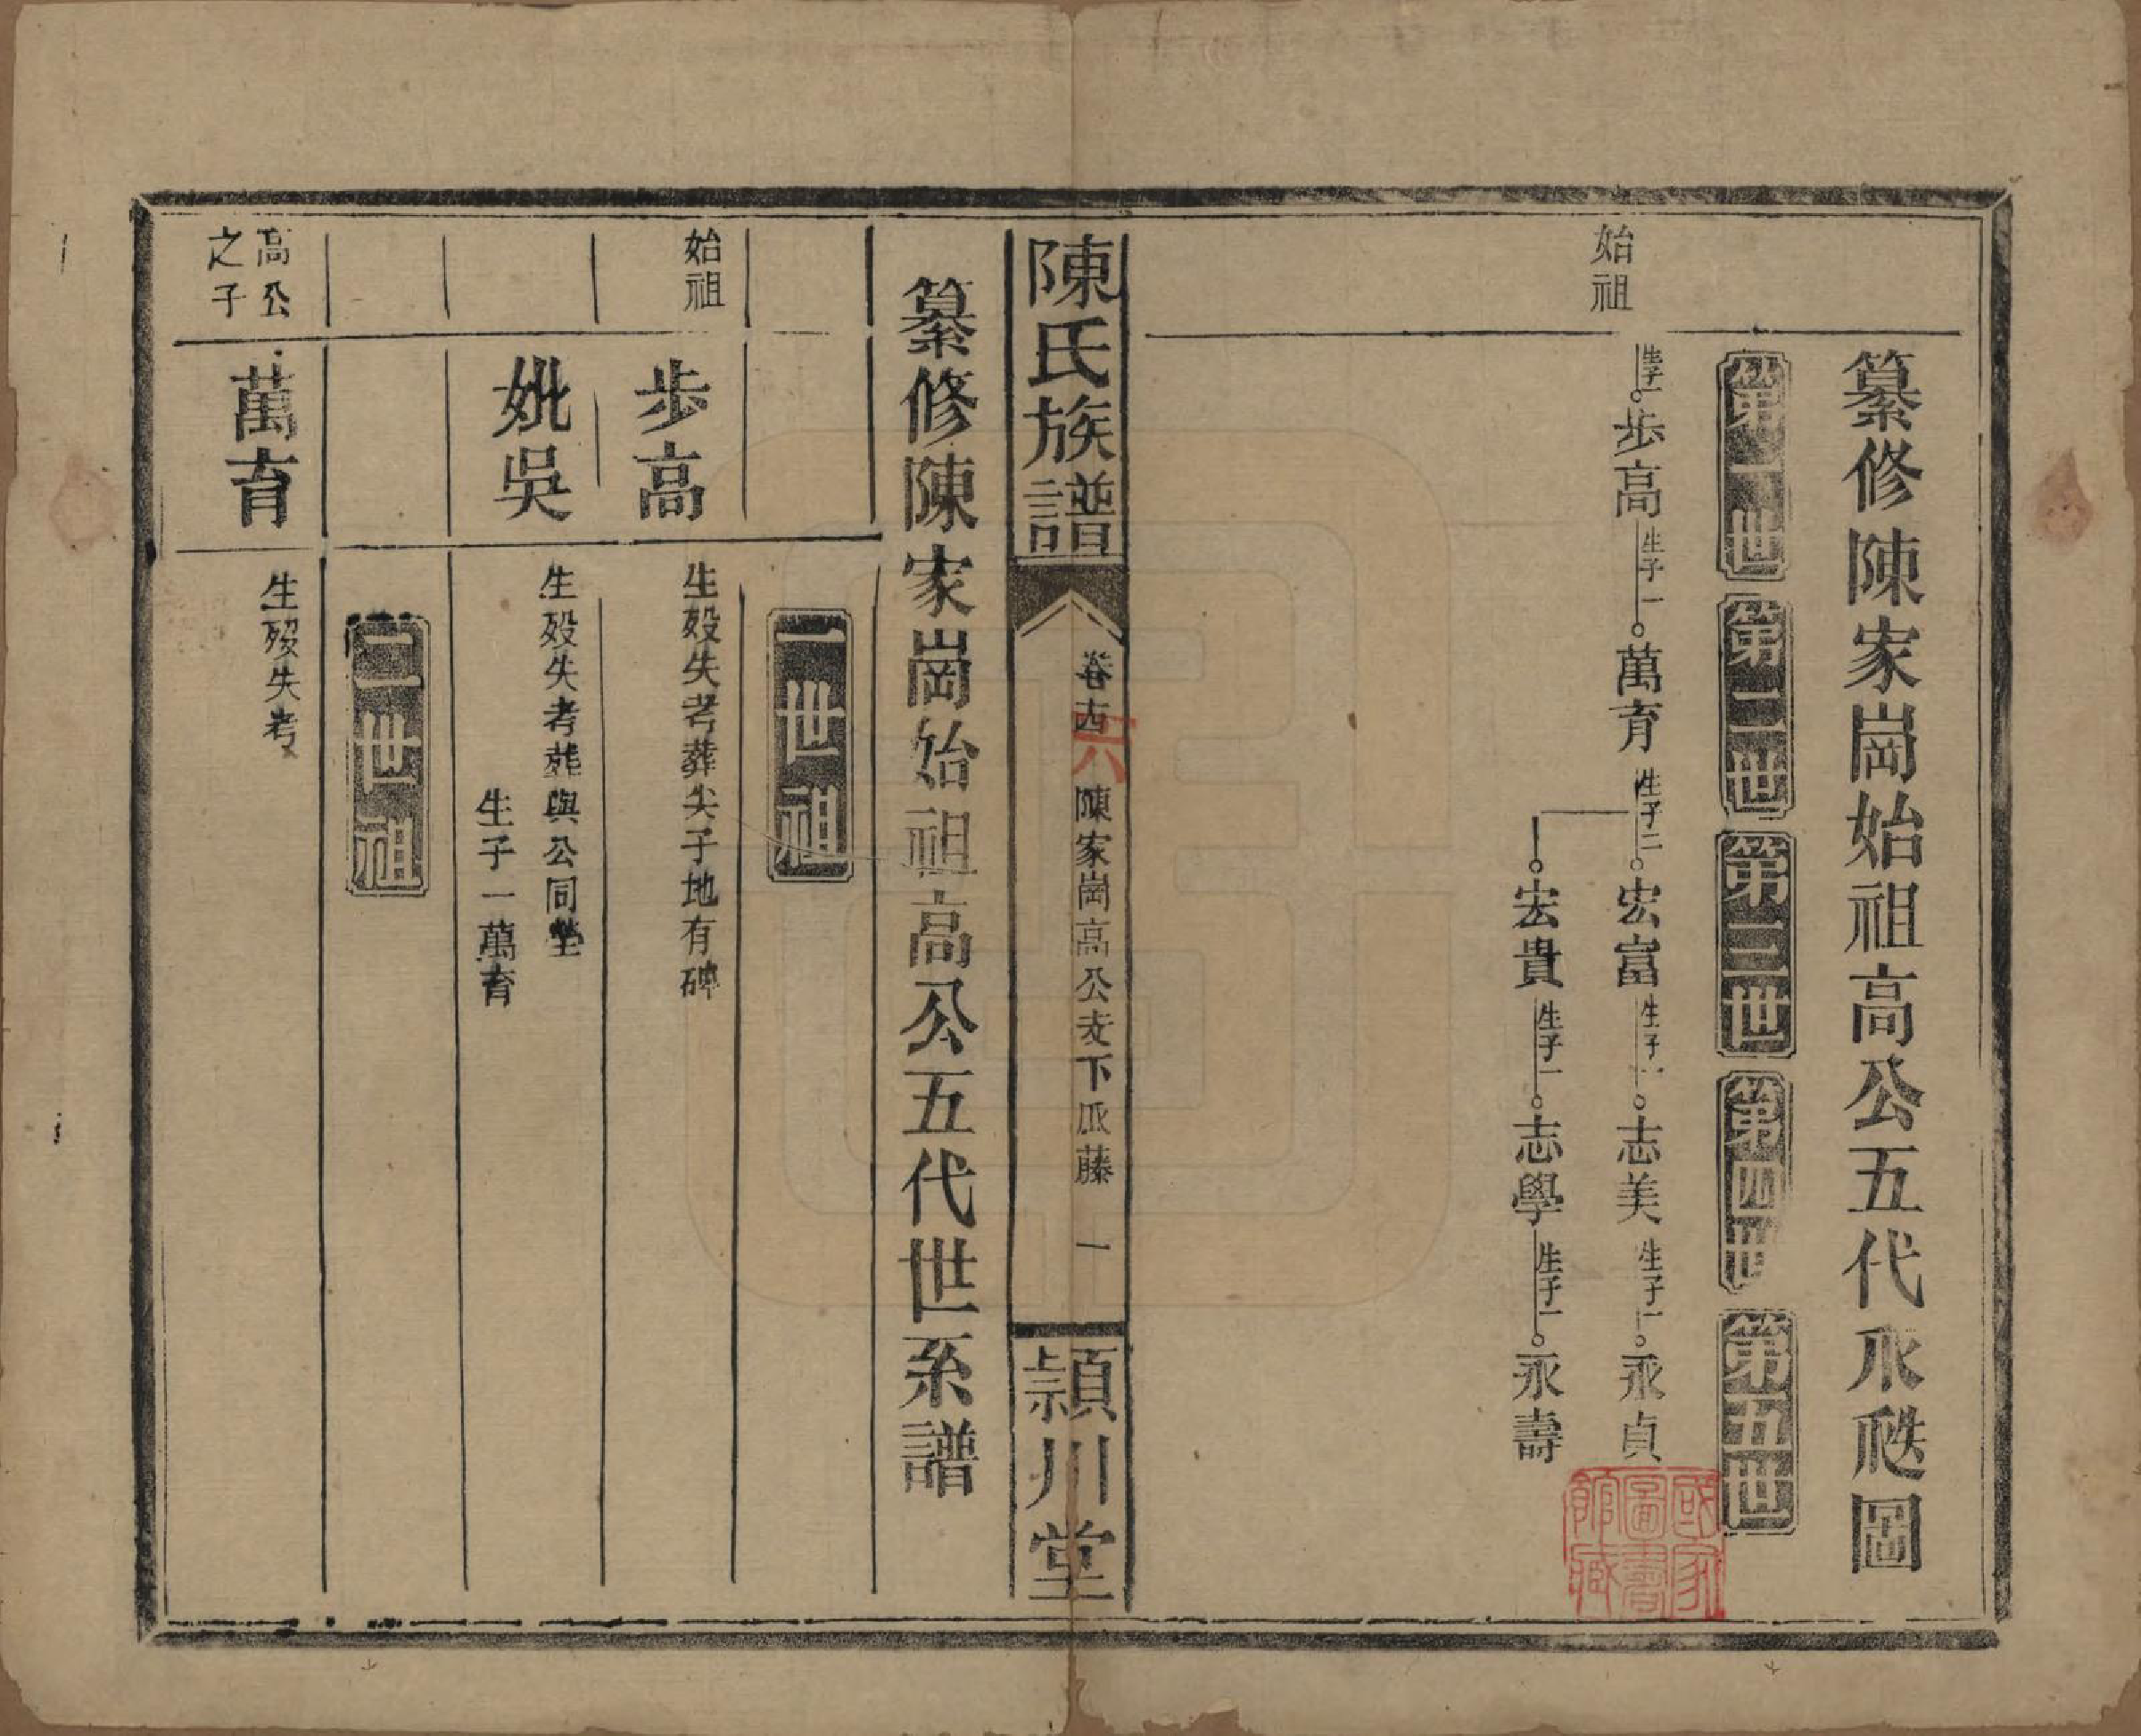 纂修陳家崗始祖高公五代𠂢愻圖
第一世
第二世
第三世
第四世
第五世
始祖
生子一 步高 生子一 萬育 生子二 宏富 生子一 志美 生子一 永貞
宏貴 生子一 志學 生子一 永壽
國家圖書館藏
陳氏族譜
卷十四 六 陳家崗高公支下瓜藤 一
潁川堂
纂修陳家崗始祖高公五代世系譜
一世祖
始祖
步高
生殁失考葬尖子地有碑
妣吳
生殁失考葬與公同塋
生子一萬育
二世祖
高公
之子
萬育
生殁失考